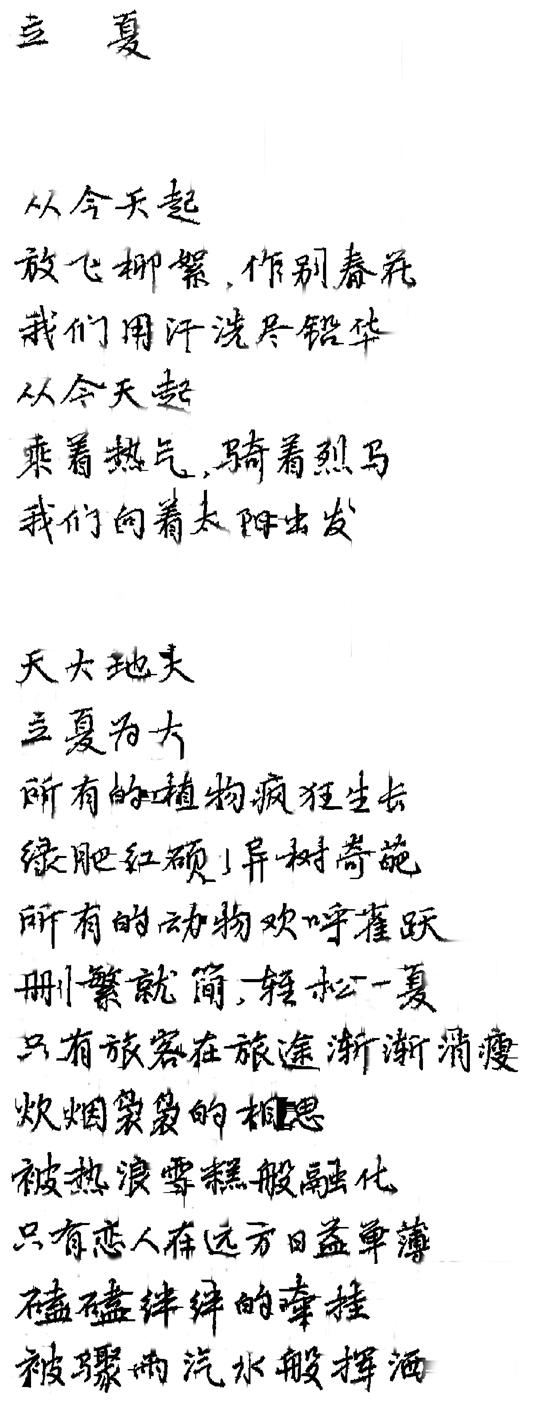 立 夏
从今天起
放飞柳絮,作别春花
我们用汗洗尽铅华
从今天起
乘着热气,骑着烈马
我们向着太阳出发
天大地大
立夏为大
所有的植物疯狂生长
绿肥红硕,异树奇葩
所有的动物欢呼雀跃
删繁就简,轻松一夏
只有旅客在旅途渐渐消瘦
炊烟袅袅的相思
被热浪雪糕般融化
只有恋人在远方日益单薄
磕磕绊绊的牵挂
被骤雨汽水般挥洒